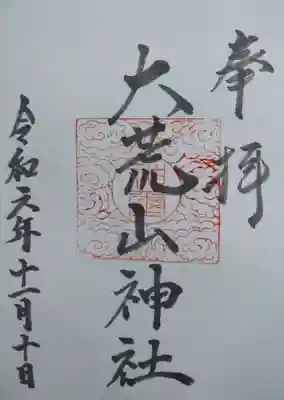 奉拝
大荒山神社
令和六年十一月十日